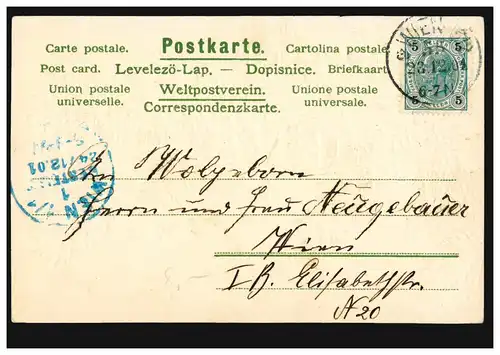 Carte postale. Postkarte. Cartolina postale.
Post card. Levelezö-Lap. — Dopisnice. Briefkaart
Union postale universelle. Weltpostverein. Unione postale universale.
Correspondenzkarte.
WIEN
12
6-7
5 5
5 5
24/12.01
WIEN 1
An Wolgeborn
Herrn und Frau Neugebauer
Wien
I B. Elisabethstr.
N 20